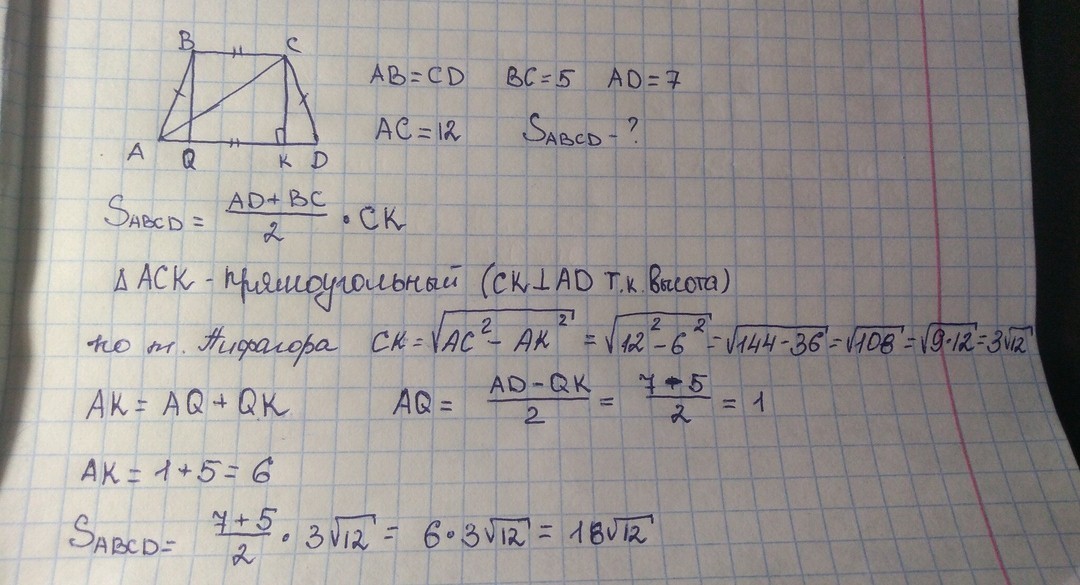 B C
A Q K D
AB = CD BC = 5 AD = 7
AC = 12 S_ABCD - ?
S_ABCD = (AD + BC)/2 · CK
△ ACK - прямоугольный (CK ⊥ AD т.к. высота)
по т. Пифагора CK = √(AC² - AK²) = √(12² - 6²) = √(144 - 36) = √108 = √(9·12) = 3√12
AK = AQ + QK AQ = (AD - QK)/2 = (7 - 5)/2 = 1
AK = 1 + 5 = 6
S_ABCD = (7 + 5)/2 · 3√12 = 6 · 3√12 = 18√12